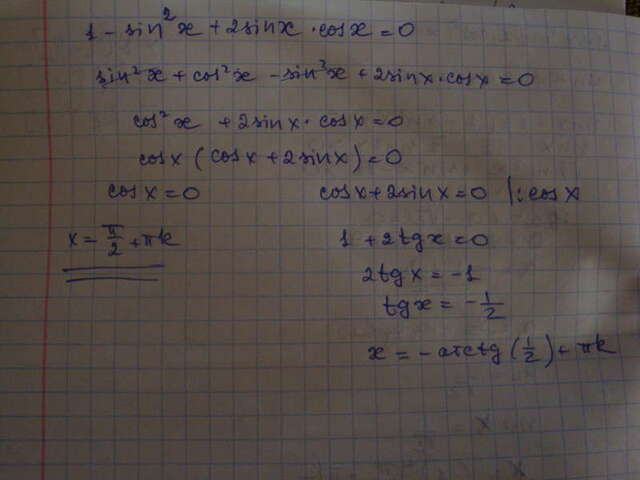 1 - sin²x + 2sinx · cosx = 0
sin²x + cos²x - sin²x + 2sinx · cosx = 0
cos²x + 2sinx · cosx = 0
cosx (cosx + 2sinx) = 0
cosx = 0 cosx + 2sinx = 0 |: cosx
x = π/2 + πk 1 + 2tgx = 0
2tgx = -1
tgx = -1/2
x = -arctg(1/2) + πk